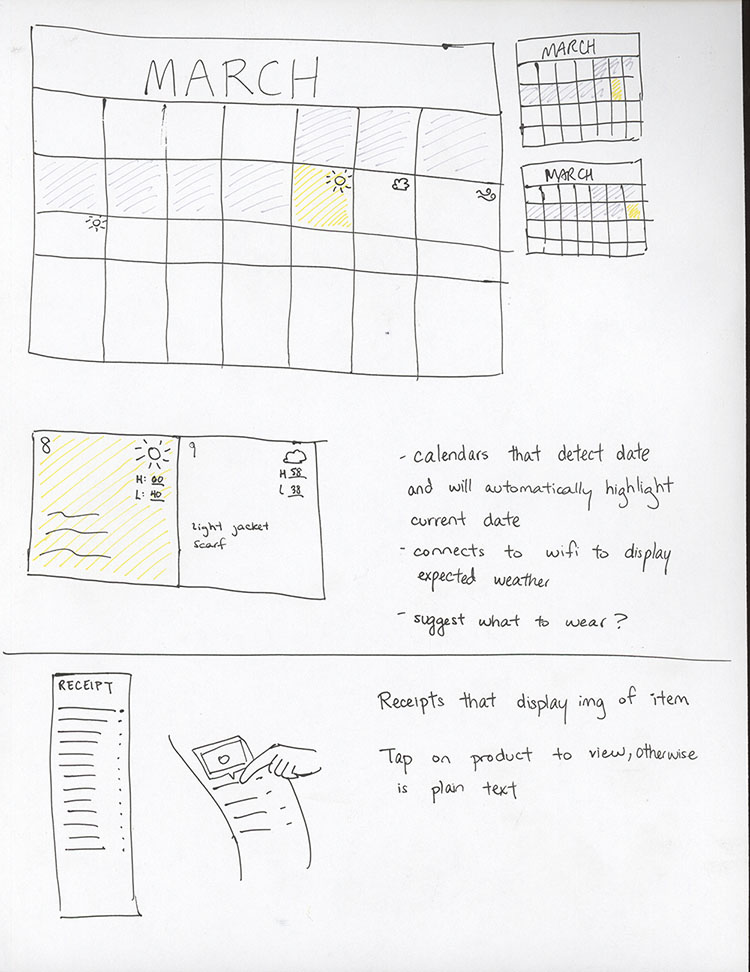 MARCH
MARCH
MARCH
8
H: 60
L: 40
9
H 58
L 38
light jacket
scarf
- calendars that detect date
and will automatically highlight
current date
- connects to wifi to display
expected weather
- suggest what to wear?
RECEIPT
Receipts that display img of item
Tap on product to view, otherwise
is plain text